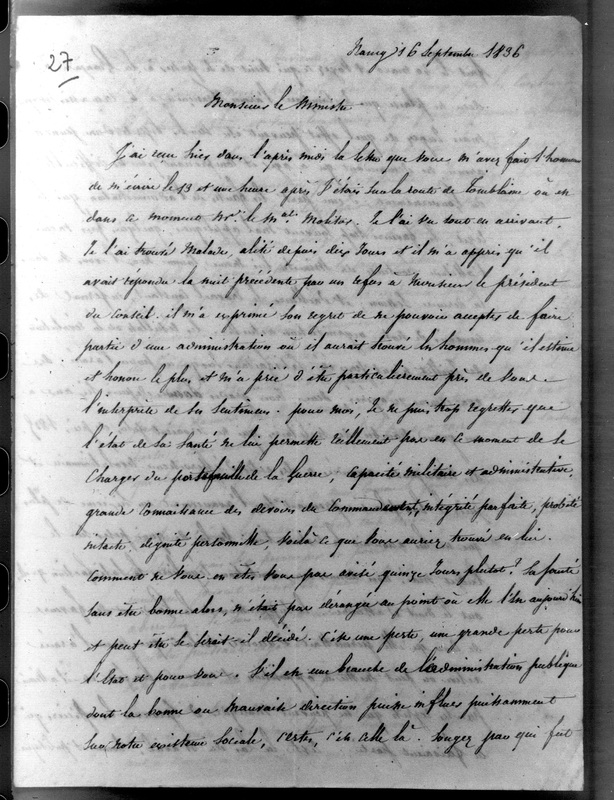 27
Nancy 16 Septembre 1836
Monsieur le Ministre
J'ai reçu hier dans l'après midi la lettre que vous m'avez fait l'honneur
de m'écrire le 13 et une heure après J'étais sur la route de Tomblaine où est
dans ce moment Mr. le Mal. Molitor. Je l'ai vu tout en arrivant.
Je l'ai trouvé Malade, alité depuis dix Jours et il m'a appris qu'il
avait répondu la nuit précédente par un refus à Monsieur le président
du Conseil. il m'a exprimé son regret de ne pouvoir accepter de faire
partie d'une administration où il aurait trouvé les hommes qu'il estime
et honore le plus et m'a prié d'être particulièrement près de vous
l'interprète de ses sentimens. pour moi, Je ne puis trop regretter que
l'état de sa Santé ne lui permette réellement pas en ce moment de se
Charger du portefeuille de la Guerre, Capacité militaire et administrative,
grande Connaissance des devoirs du Commandement, intégrité parfaite, probité
intacte, dignité personnelle, Voilà ce que vous auriez trouvé en lui.
Comment ne vous en êtes vous pas avisé quinze Jours plutot? Sa Santé
sans être bonne alors, n'était pas dérangée au point où elle l'est aujourd'hui
et peut être se serait-il décidé. C'est une perte, une grande perte pour
l'Etat et pour vous. S'il est une branche de l'administration publique
dont la bonne ou mauvaise direction puisse influer puissamment
sur notre existence Sociale, Certes, c'est celle là. Songez par qui fut